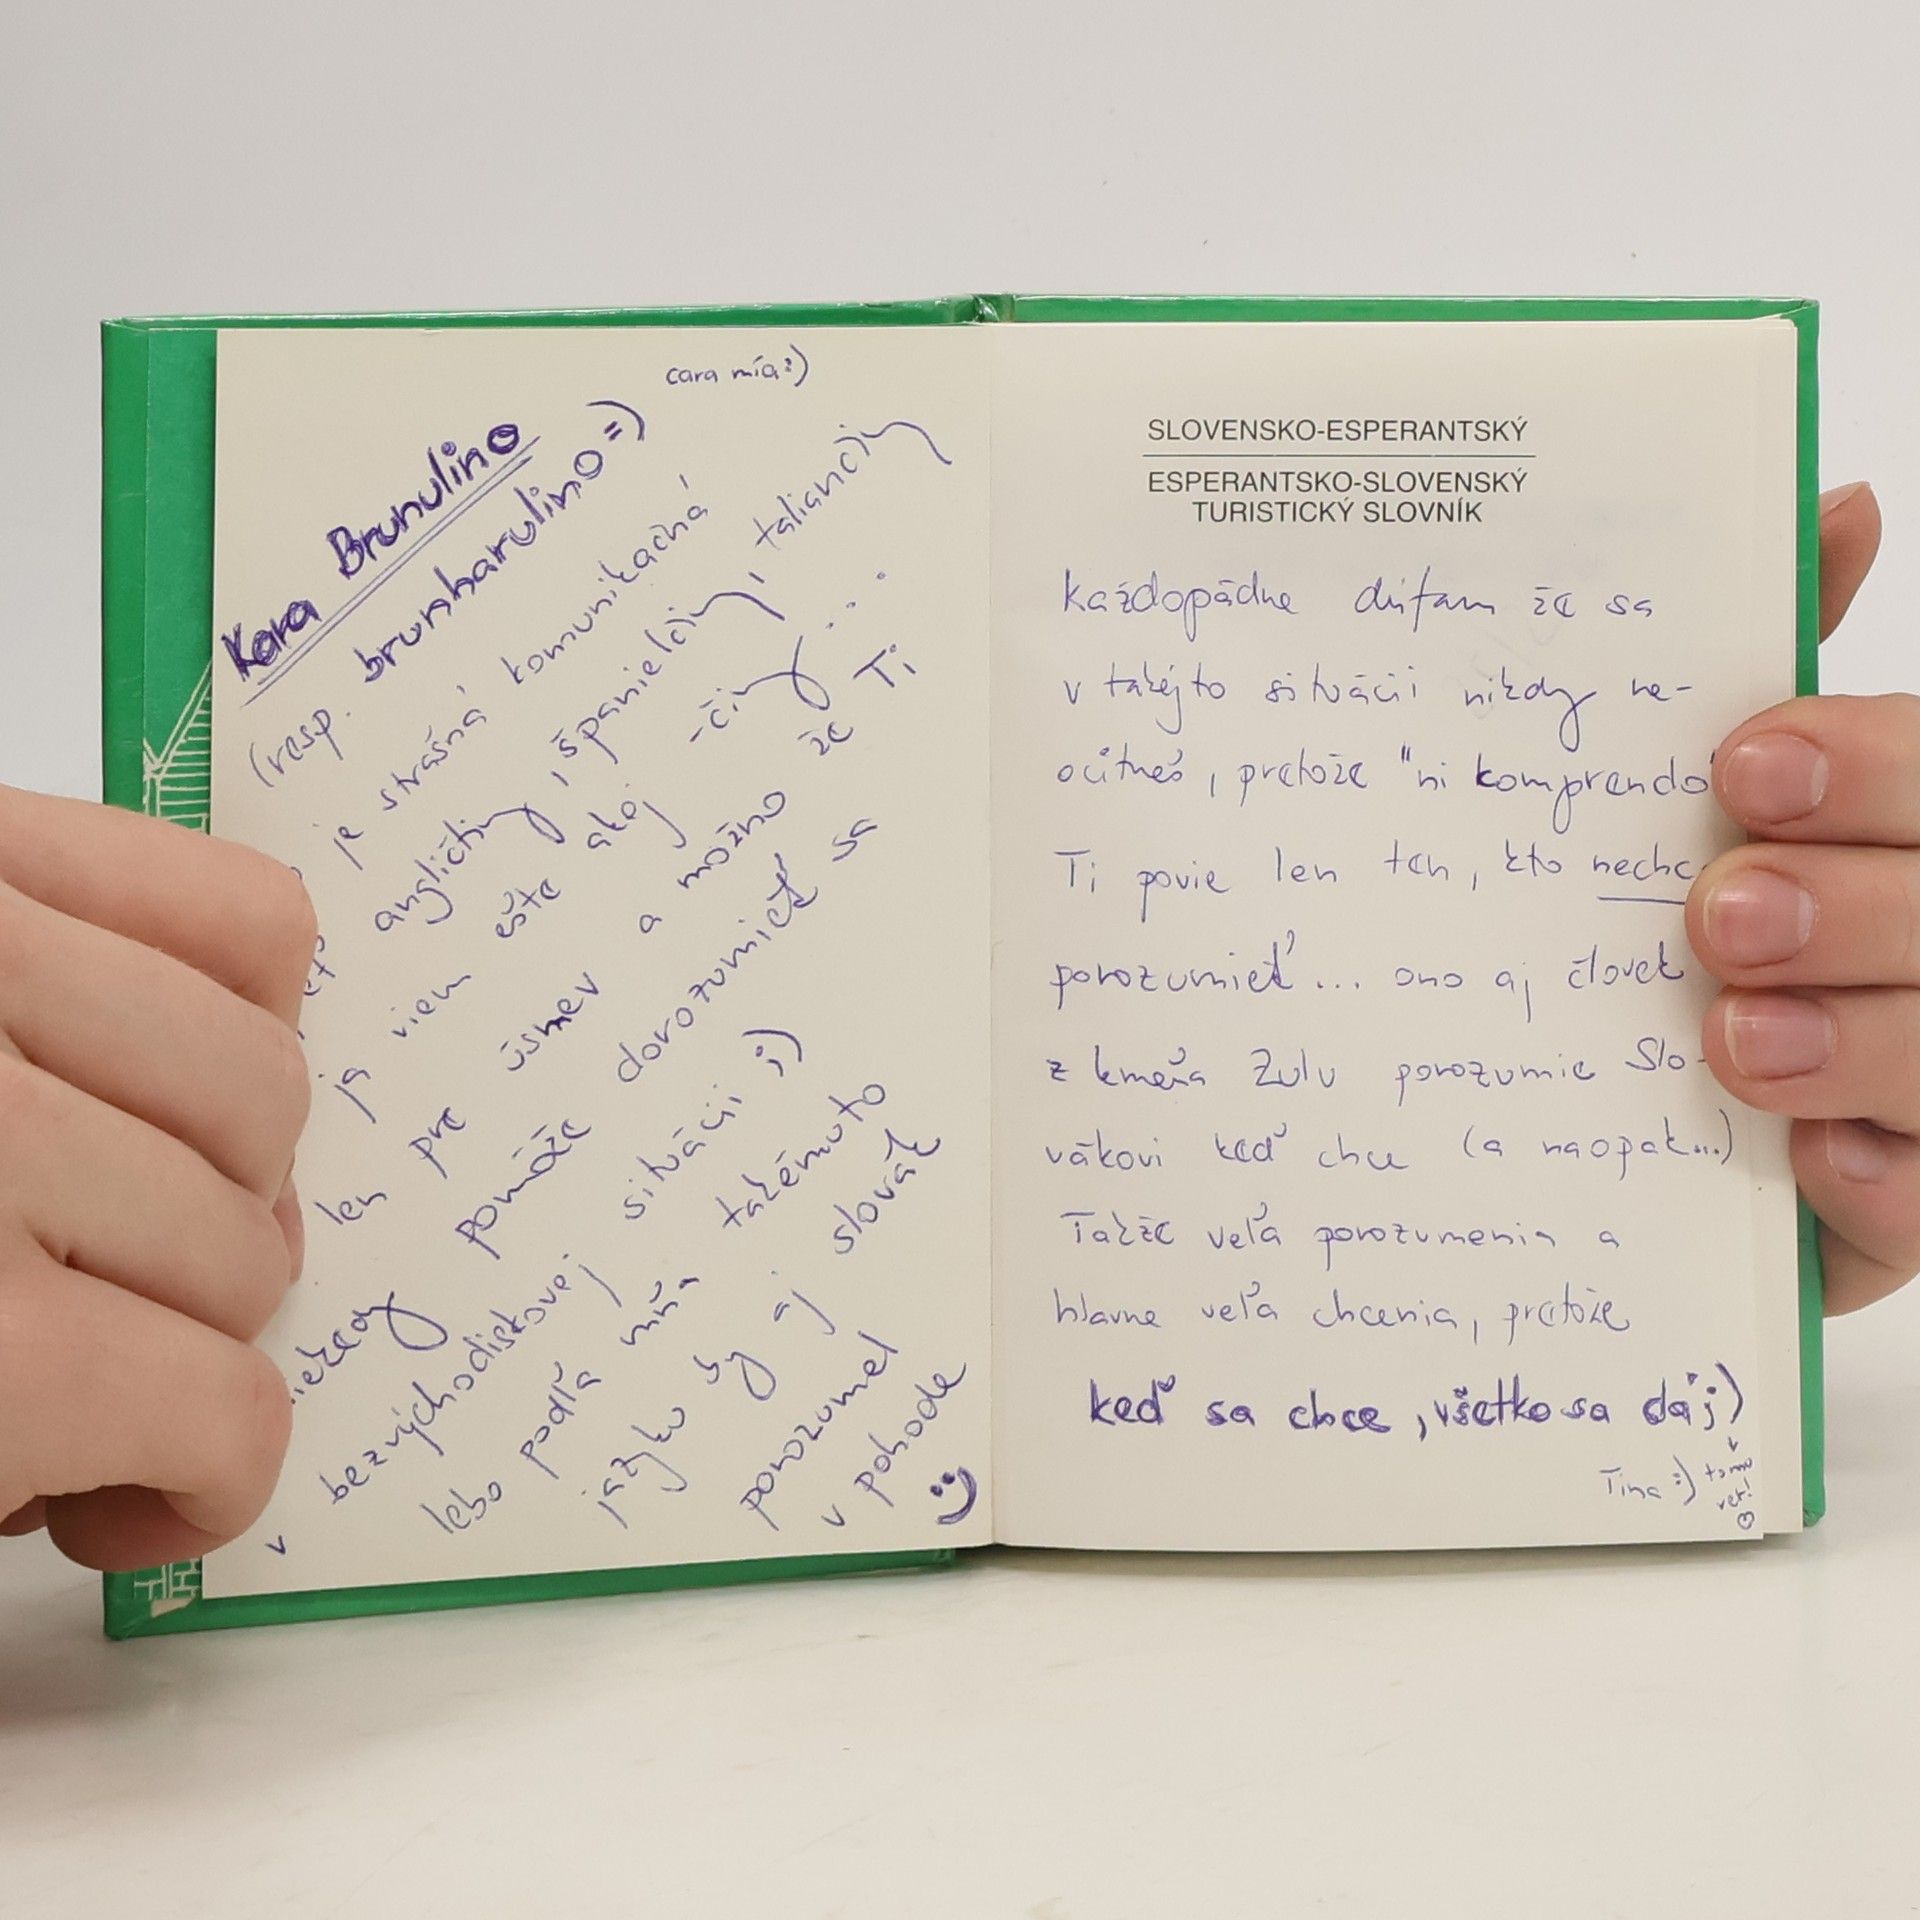 cara mía:)
Kara Brunulino
(resp. brunharulino =)
je strašná komunikačná
angličtiny, španielčiny, taliančiny
ja viem ešte akej -činy ...
len pre úsmev a možno že Ti
niekedy pomôže dorozumieť sa
v bezvýchodiskovej situácii ;)
lebo podľa mňa takémuto
jazyku by aj slovák
porozumel
v pohode
SLOVENSKO-ESPERANTSKÝ
ESPERANTSKO-SLOVENSKÝ
TURISTICKÝ SLOVNÍK
Každopádne dúfam že sa
v takejto situácii nikdy ne-
ocitneš, pretože "ni komprendo"
Ti povie len ten, kto nechc
porozumieť... ono aj človek
z kmeňa Zulu porozumie Slo-
vákovi keď chce (a naopak...)
Takže veľa porozumenia a
hlavne veľa chcenia, pretože
keď sa chce, všetko sa dá ;)
Tina :) tomu
ver!